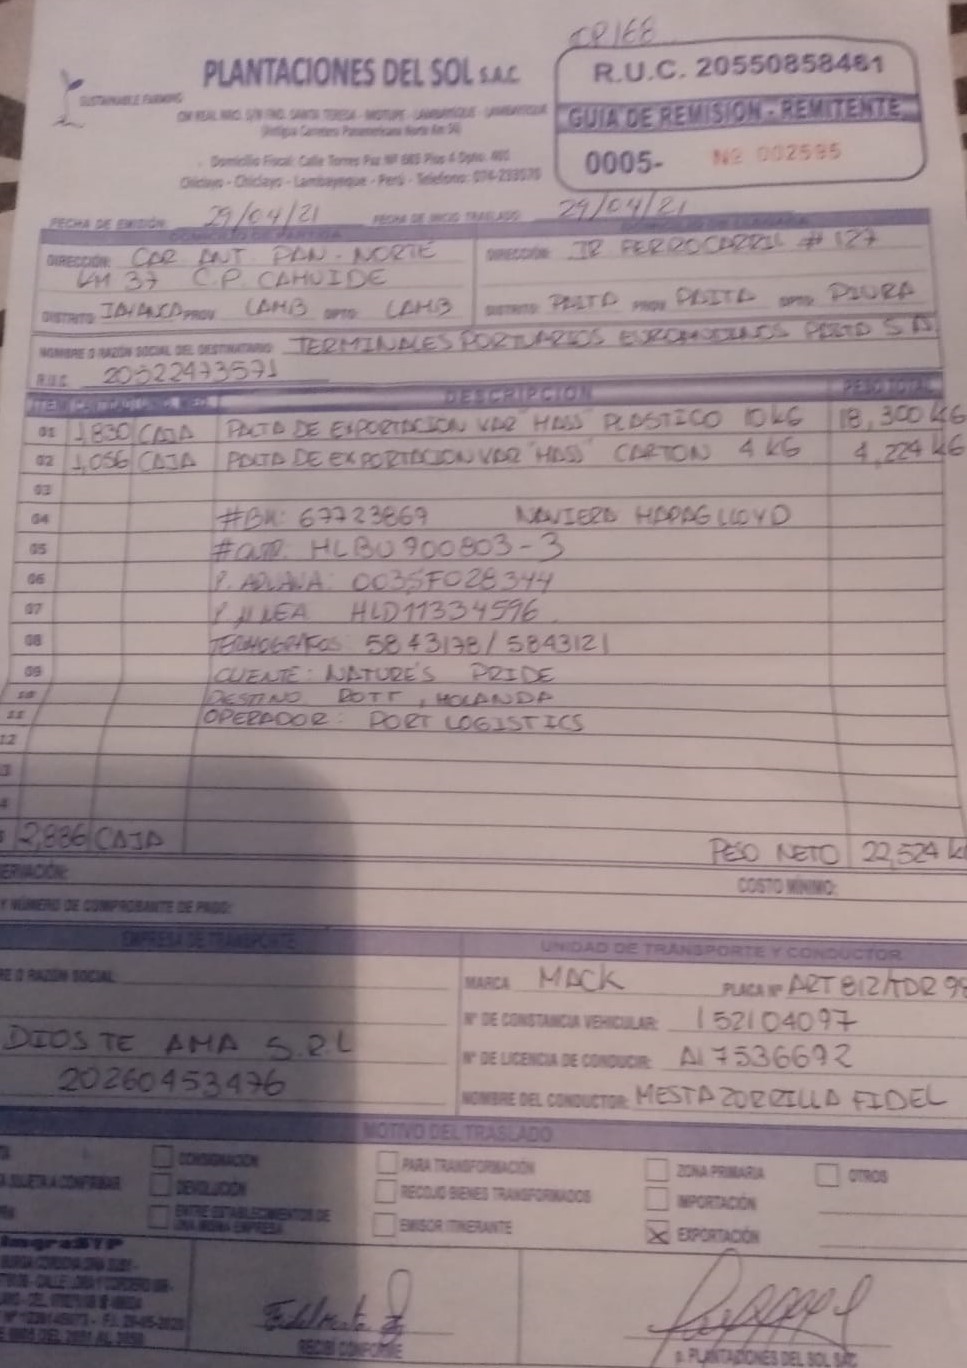 IP168
PLANTACIONES DEL SOL S.A.C
SUSTAINABLE FARMING
CM REAL NRO. S/N FND. SANTA TERESA - MOTUPE - LAMBAYEQUE - LAMBAYEQUE
(Antigua Carretera Panamericana Norte Km 56)
Domicilio Fiscal: Calle Torres Paz Nº 683 Piso 4 Dpto. 401
Chiclayo - Chiclayo - Lambayeque - Perú - Teléfono: 074-233570
R.U.C. 20550858461
GUIA DE REMISION - REMITENTE
0005- Nº 002595
FECHA DE EMISIÓN: 29/04/21 FECHA DE INICIO TRASLADO 29/04/21
DOMICILIO DE PARTIDA DOMICILIO DE LLEGADA
DIRECCIÓN: CAR ANT PAN. NORTE
KM 37 C.P. CAHUIDE
DISTRITO: JAYANCA PROV. LAMB DPTO. LAMB
DIRECCIÓN: JR FERROCARRIL # 127
DISTRITO: PAITA PROV. PAITA DPTO. PIURA
NOMBRE O RAZÓN SOCIAL DEL DESTINATARIO: TERMINALES PORTUARIOS EUROANDINOS PAITA S A
R.U.C. 20522473571
DESCRIPCION PESO TOTAL
01 1,830 CAJA PALTA DE EXPORTACION VAR "HASS" PLASTICO 10 KG 18,300 KG
02 1,056 CAJA PALTA DE EXPORTACION VAR "HASS" CARTON 4 KG 4,224 KG
03
04 #BK: 67723869 NAVIERA HAPAG LLOYD
05 #CNTR. HLBU 900803-3
06 P. ADUANA: 0035F028344
07 P. LINEA HLD11334596
08 TERMOGRAFOS: 5843178/5843121
09 CLIENTE: NATURE'S PRIDE
10 DESTINO ROTT, HOLANDA
11 OPERADOR: PORT LOGISTICS
12
3
4
2,886 CAJA PESO NETO 22,524 k
ERVACIÓN: COSTO MÍNIMO:
Y NÚMERO DE COMPROBANTE DE PAGO:
EMPRESA DE TRANSPORTE
RE O RAZÓN SOCIAL
DIOS TE AMA S.R.L
20260453476
UNIDAD DE TRANSPORTE Y CONDUCTOR
MARCA MACK PLACA Nº ART 812/TDR 99
Nº DE CONSTANCIA VEHICULAR: 152104097
Nº DE LICENCIA DE CONDUCIR: A17536692
NOMBRE DEL CONDUCTOR: MESTA ZORRILLA FIDEL
MOTIVO DEL TRASLADO
TA CONSIGNACIÓN PARA TRANSFORMACIÓN ZONA PRIMARIA OTROS
A SUJETA A CONFIRMAR DEVOLUCIÓN RECOJO BIENES TRANSFORMADOS IMPORTACIÓN
PRA ENTRE ESTABLECIMIENTOS DE
UNA MISMA EMPRESA EMISOR ITINERANTE X EXPORTACIÓN
RECIBÍ CONFORME
p. PLANTACIONES DEL SOL SAC